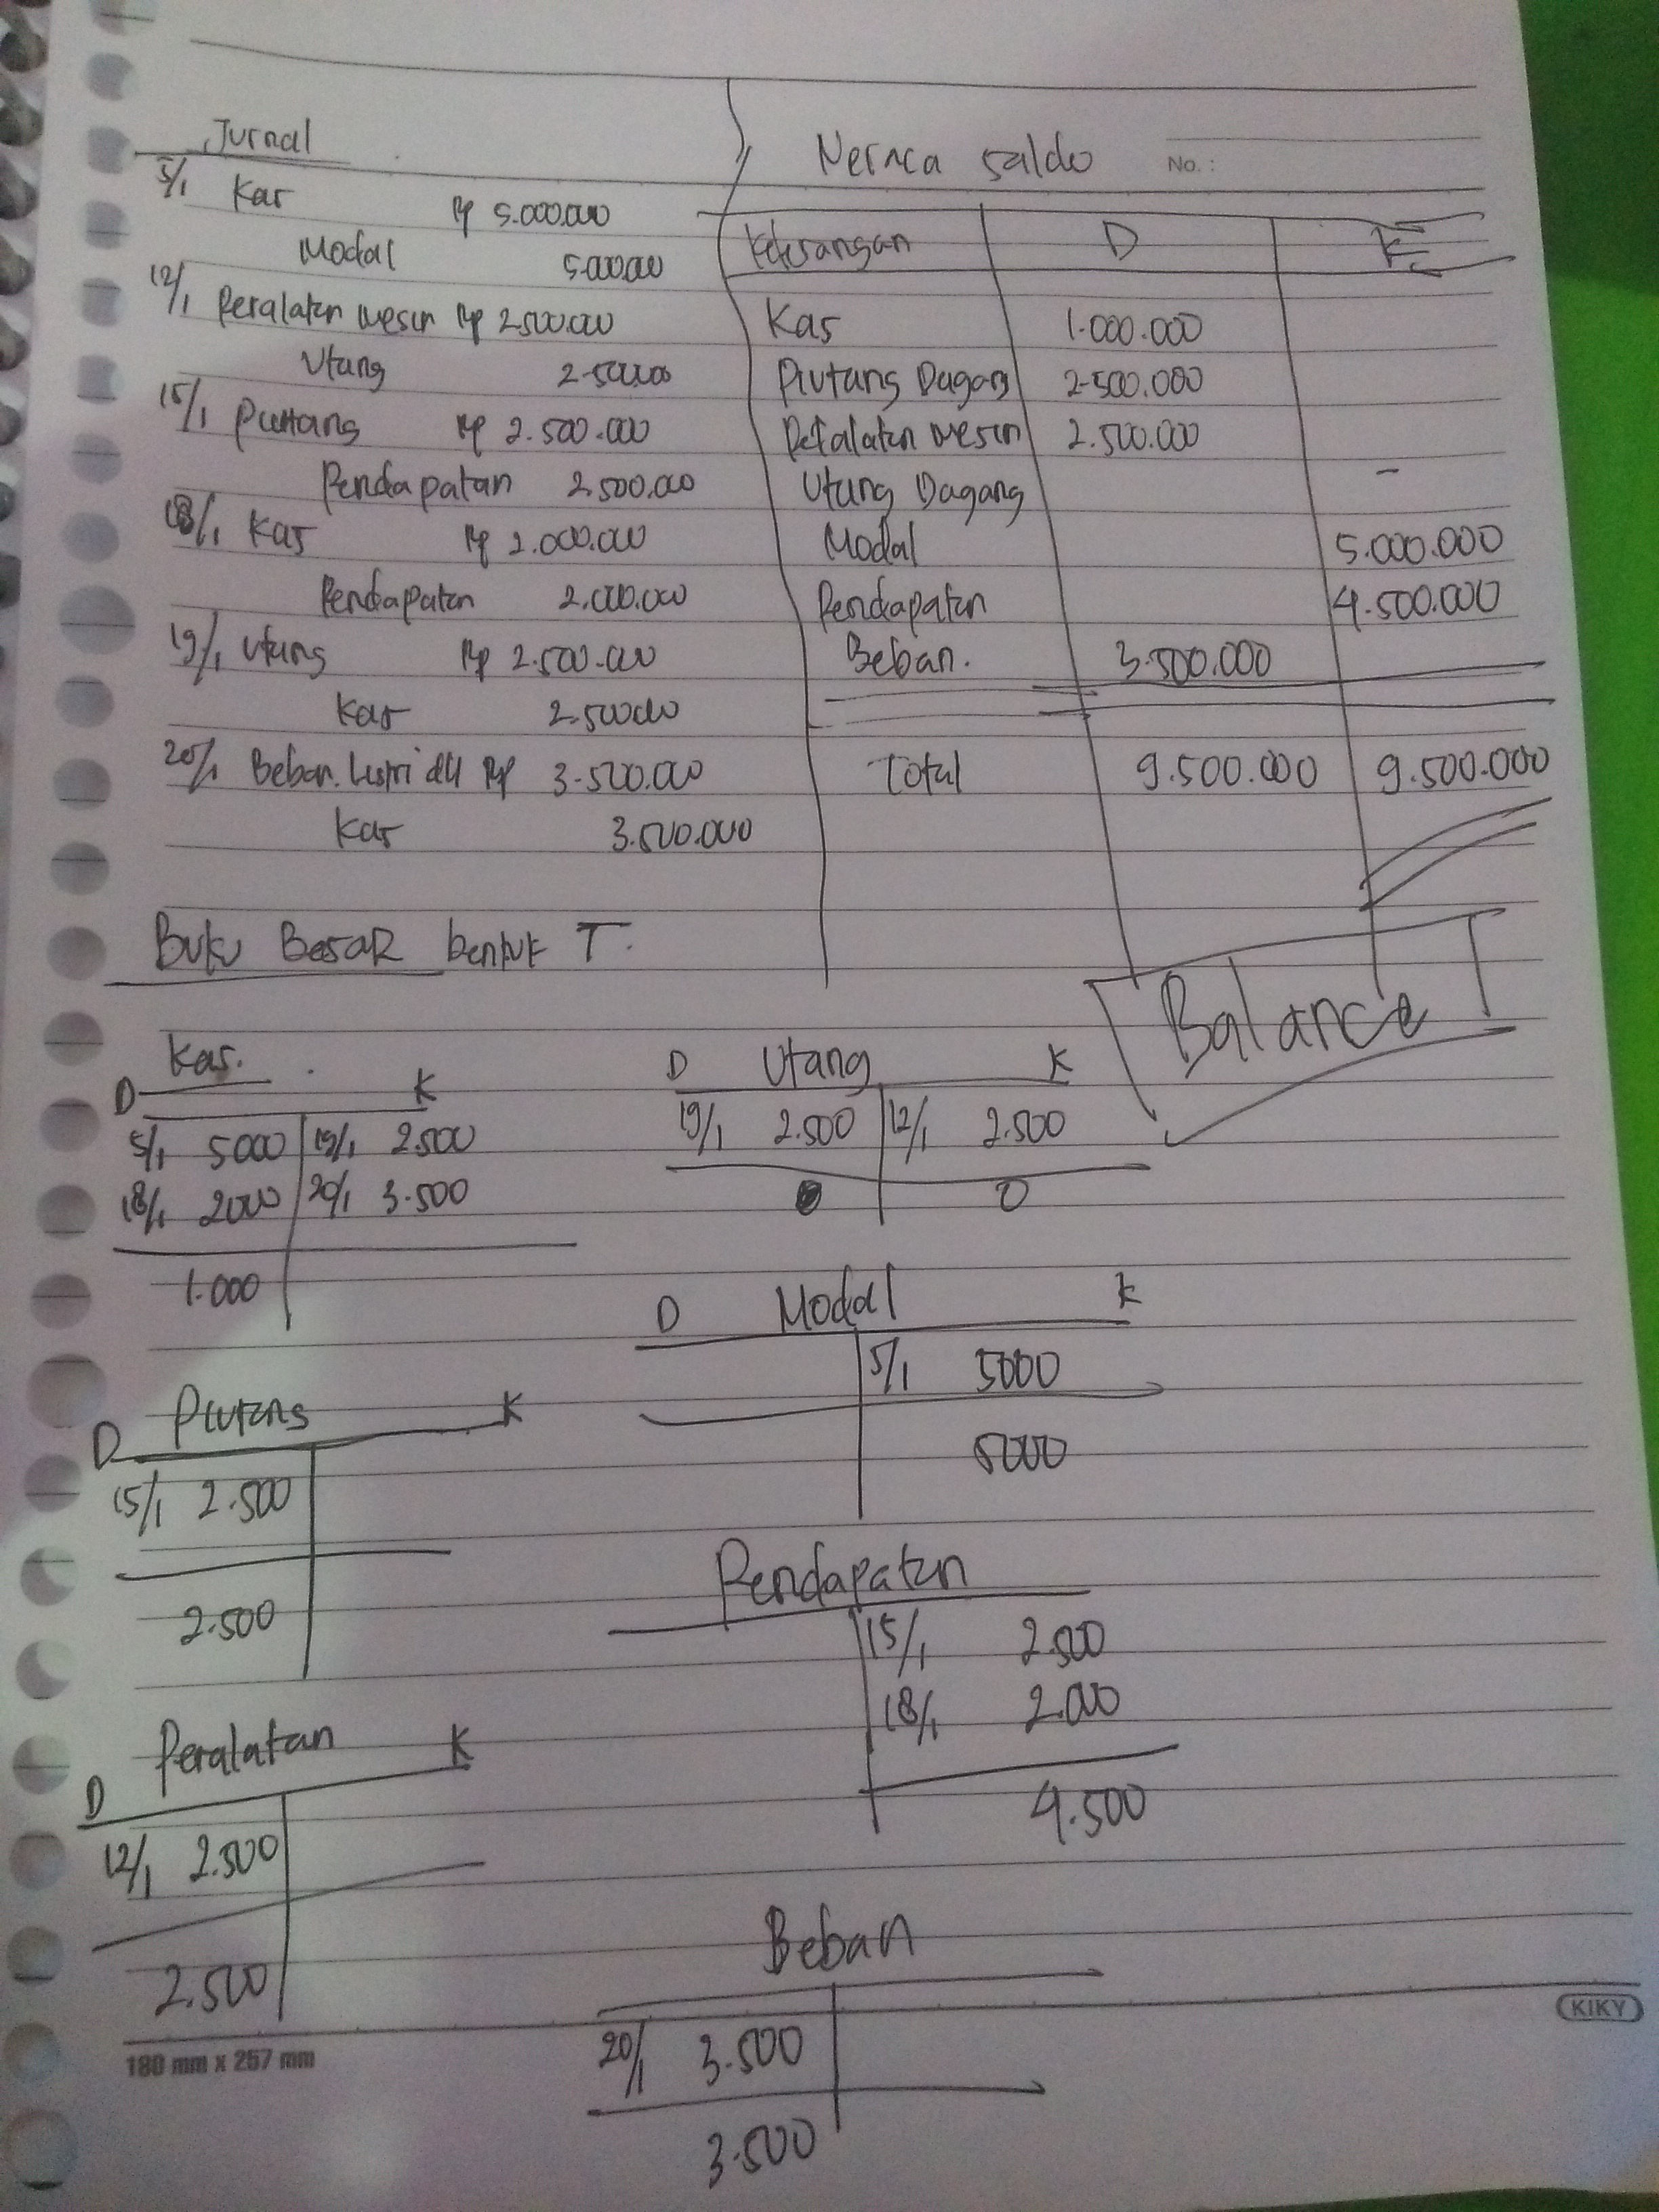 Jurnal
5/1 Kas Rp 5.000.000
Modal 5.000.000
12/1 Peralatan mesin Rp 2.500.000
Utang 2.500.000
15/1 Piutang Rp 2.500.000
Pendapatan 2.500.000
18/1 Kas Rp 2.000.000
Pendapatan 2.000.000
19/1 Utang Rp 2.500.000
Kas 2.500.000
20/1 Beban listri dll Rp 3.500.000
Kas 3.500.000
Nernca saldo
No. :
Keterangan D K
Kas 1.000.000
Piutang Dagang 2.500.000
Peralatan mesin 2.500.000
Utang Dagang -
Modal 5.000.000
Pendapatan 4.500.000
Beban. 3.500.000
Total 9.500.000 9.500.000
Balance
Buku Besar bentuk T.
Kas.
D K
5/1 5000 19/1 2.500
18/1 2000 20/1 3.500
1.000
D Utang K
19/1 2.500 12/1 2.500
0
D Modal K
5/1 5000
5000
D Piutang K
15/1 2.500
2.500
Pendapatan
15/1 2.500
18/1 2.000
4.500
D Peralatan K
12/1 2.500
2.500
Beban
20/1 3.500
3.500
180 mm x 257 mm
KIKY